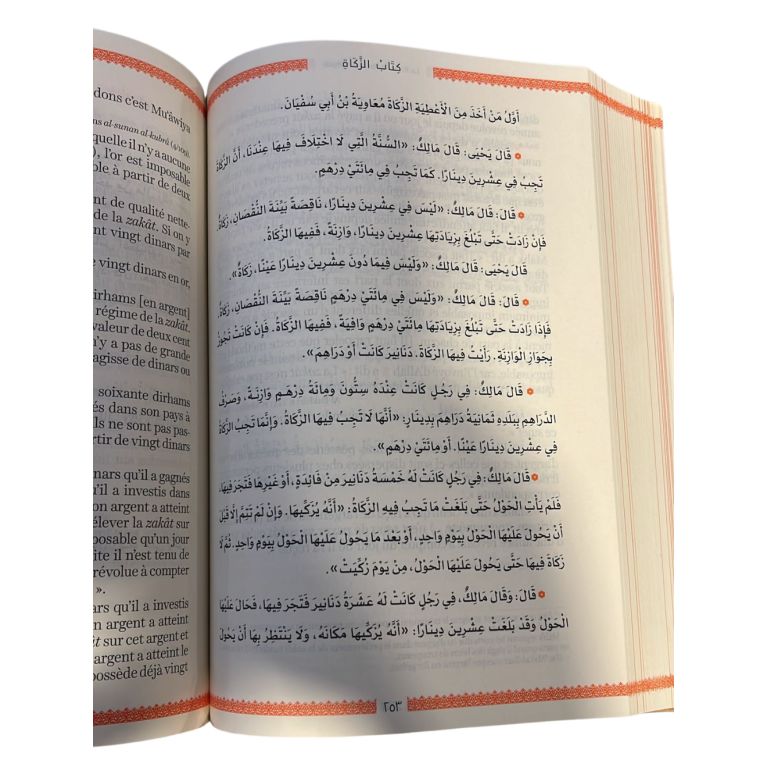 dons c'est Mu'âwiya
as al-sunan al-kubrâ (4/109).
quelle il n'y a aucune
), l'or est imposable
ble à partir de deux
nt de qualité nette-
de la zakât. Si on y
nt vingt dinars par
e vingt dinars en or,
dirhams [en argent]
régime de la zakât.
valeur de deux cent
n'y a pas de grande
agisse de dinars ou
soixante dirhams
és dans son pays à
ils ne sont pas pas-
rtir de vingt dinars
nars qu'il a gagnés
u'il a investis dans
on argent a atteint
élever la zakât sur
posable qu'un jour
ite il n'est tenu de
révolue à compter
».
ars qu'il a investis
n argent a atteint
ât sur cet argent et
argent a atteint le
possède déjà vingt
كِتَابُ الزَّكَاةِ
أَوَّلُ مَنْ أَخَذَ مِنَ الْأَعْطِيَةِ الزَّكَاةَ مُعَاوِيَةُ بْنُ أَبِي سُفْيَانَ.
قَالَ يَحْيَى: قَالَ مَالِكٌ: «السُّنَّةُ الَّتِي لَا اخْتِلَافَ فِيهَا عِنْدَنَا، أَنَّ الزَّكَاةَ
تَجِبُ فِي عِشْرِينَ دِينَارًا. كَمَا تَجِبُ فِي مِائَتَيْ دِرْهَمٍ.
قَالَ: قَالَ مَالِكٌ: «لَيْسَ فِي عِشْرِينَ دِينَارًا، نَاقِصَةً بَيِّنَةَ النُّقْصَانِ، زَكَاةٌ
فَإِنْ زَادَتْ حَتَّى تَبْلُغَ بِزِيَادَتِهَا عِشْرِينَ دِينَارًا، وَازِنَةً، فَفِيهَا الزَّكَاةُ.
قَالَ يَحْيَى: قَالَ مَالِكٌ: «وَلَيْسَ فِيمَا دُونَ عِشْرِينَ دِينَارًا عَيْنًا، زَكَاةٌ».
قَالَ: قَالَ مَالِكٌ: «وَلَيْسَ فِي مِائَتَيْ دِرْهَمٍ نَاقِصَةً بَيِّنَةَ النُّقْصَانِ، زَكَاةٌ
فَإِذَا زَادَتْ حَتَّى تَبْلُغَ بِزِيَادَتِهَا مِائَتَيْ دِرْهَمٍ وَافِيَةً، فَفِيهَا الزَّكَاةُ. فَإِنْ كَانَتْ تَجُوزُ
بِجَوَازِ الْوَازِنَةِ. رَأَيْتُ فِيهَا الزَّكَاةَ. دَنَانِيرَ كَانَتْ أَوْ دَرَاهِمَ».
قَالَ مَالِكٌ: فِي رَجُلٍ كَانَتْ عِنْدَهُ سِتُّونَ وَمِائَةُ دِرْهَمٍ وَازِنَةً، وَصَرْفُ
الدَّرَاهِمِ بِبَلَدِهِ ثَمَانِيَةُ دَرَاهِمَ بِدِينَارٍ: «أَنَّهَا لَا تَجِبُ فِيهَا الزَّكَاةُ. وَإِنَّمَا تَجِبُ الزَّكَاةُ
فِي عِشْرِينَ دِينَارًا عَيْنًا. أَوْ مِائَتَيْ دِرْهَمٍ».
قَالَ مَالِكٌ: فِي رَجُلٍ كَانَتْ لَهُ خَمْسَةُ دَنَانِيرَ مِنْ فَائِدَةٍ، أَوْ غَيْرِهَا فَتَجَرَ فِيهَا،
فَلَمْ يَأْتِ الْحَوْلُ حَتَّى بَلَغَتْ مَا تَجِبُ فِيهِ الزَّكَاةُ: «أَنَّهُ يُزَكِّيهَا. وَإِنْ لَمْ تَتِمَّ إِلَّا قَبْلَ
أَنْ يَحُولَ عَلَيْهَا الْحَوْلُ بِيَوْمٍ وَاحِدٍ، أَوْ بَعْدَ مَا يَحُولُ عَلَيْهَا الْحَوْلُ بِيَوْمٍ وَاحِدٍ. ثُمَّ لَا
زَكَاةَ فِيهَا حَتَّى يَحُولَ عَلَيْهَا الْحَوْلُ، مِنْ يَوْمِ زُكِّيَتْ».
قَالَ: وَقَالَ مَالِكٌ، فِي رَجُلٍ كَانَتْ لَهُ عَشَرَةُ دَنَانِيرَ فَتَجَرَ فِيهَا، فَحَالَ عَلَيْهَا
الْحَوْلُ وَقَدْ بَلَغَتْ عِشْرِينَ دِينَارًا: «أَنَّهُ يُزَكِّيهَا مَكَانَهُ، وَلَا يَنْتَظِرُ بِهَا أَنْ يَحُولَ
٢٥٣